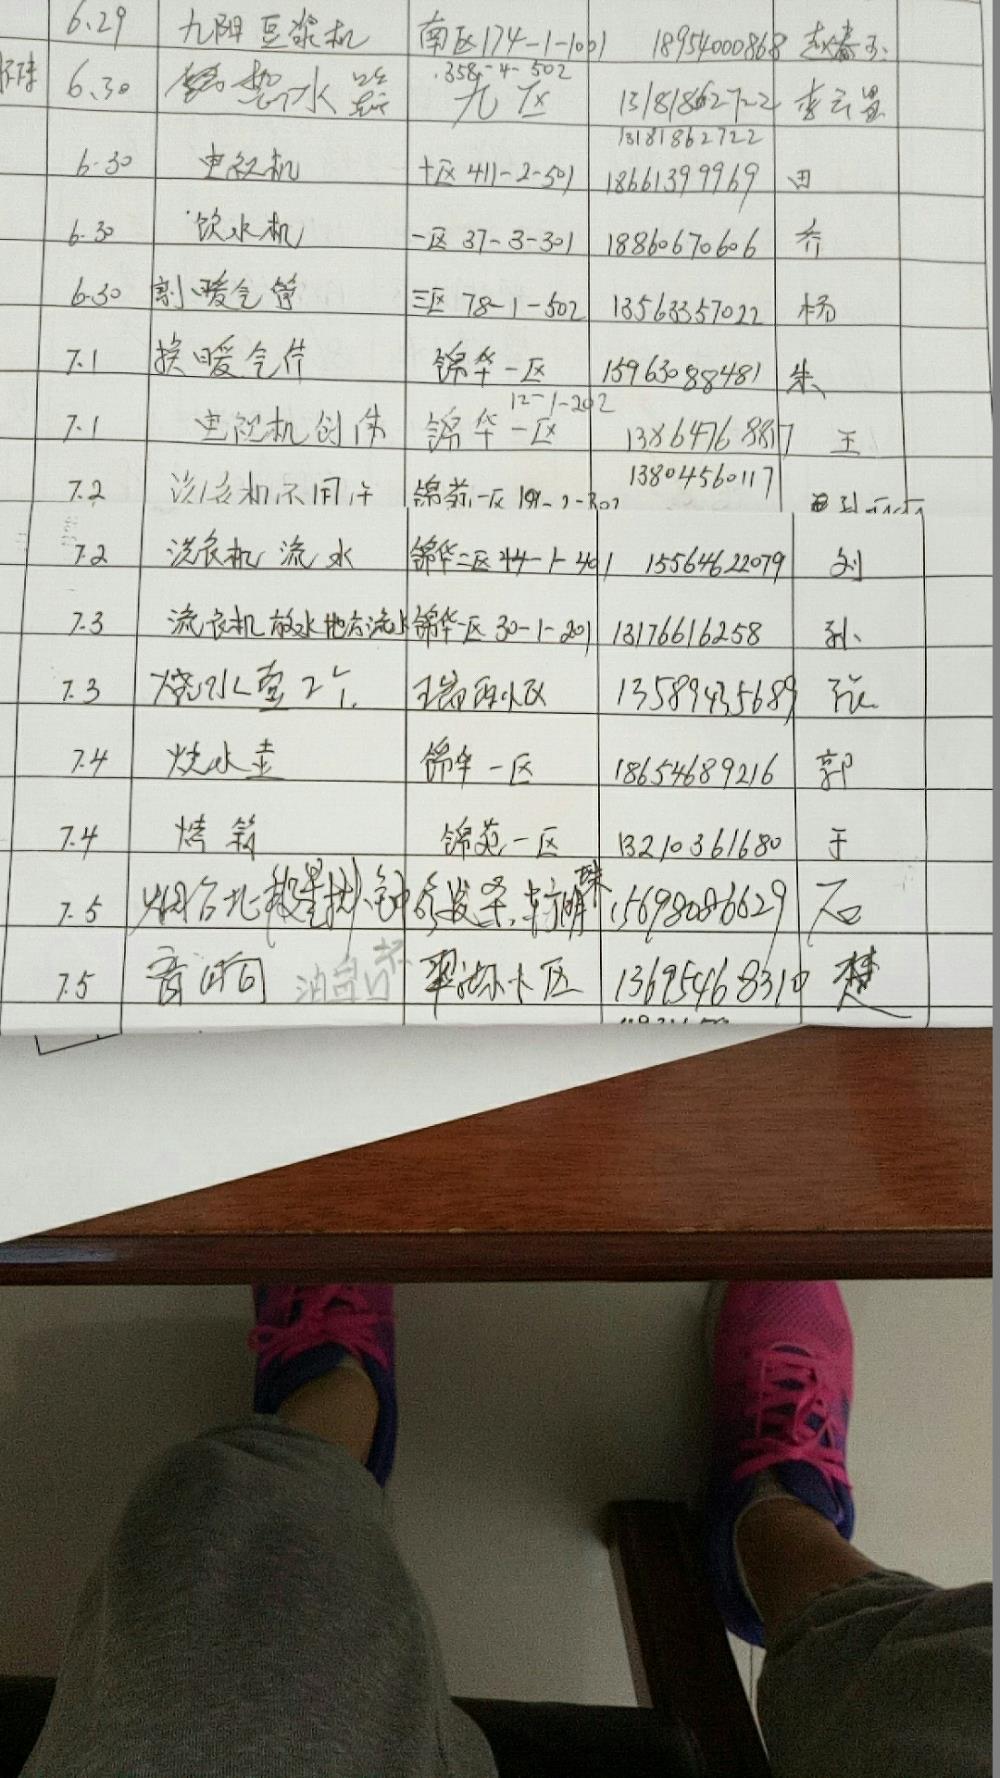 6.29 九阳豆浆机 南区174-1-1001 18954000868 赵春玉
358-4-502
6.30 水器 九区 13181862722 李云
13181862722
6.30 电视机 十区411-2-501 18661399969 田
6.30 饮水机 一区 37-3-301 18860670606 乔
6.30 割暖气管 三区 78-1-502 13563357022 杨
7.1 换暖气片 锦华一区 15963088481 朱
12-1-202
7.1 电视机 锦华一区 13864768817 王
13804560117
7.2 洗衣机不同 锦苑一区
7.2 洗衣机流水 锦华二区44-1-401 15564622079 刘
7.3 流衣机放水地方流水 锦华一区30-1-201 13176616258 孙
7.3 烧水壶2个 西小区 13589435689 张
7.4 烧水壶 锦华一区 18654689216 郭
7.4 烤箱 锦苑一区 13210361680 于
7.5 烟台北极星 15698086629 石
7.5 音响 区 13695468310 楚